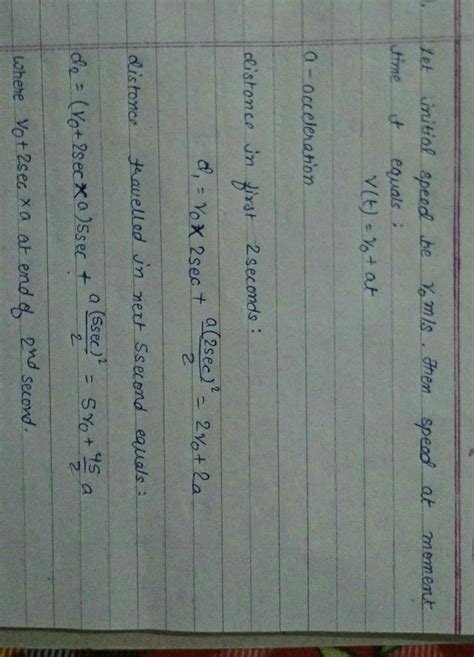 Let initial speed be v₀ m/s. then speed at moment
time t equals:
v(t) = v₀ + at
a - acceleration
distance in first 2 seconds:
d₁ = v₀ × 2sec + a(2sec)²/2 = 2v₀ + 2a
distance travelled in next 5second equals:
d₂ = (v₀ + 2sec × a)5sec + a(5sec)²/2 = 5v₀ + 45/2 a
where v₀ + 2sec × a at end of 2nd second.